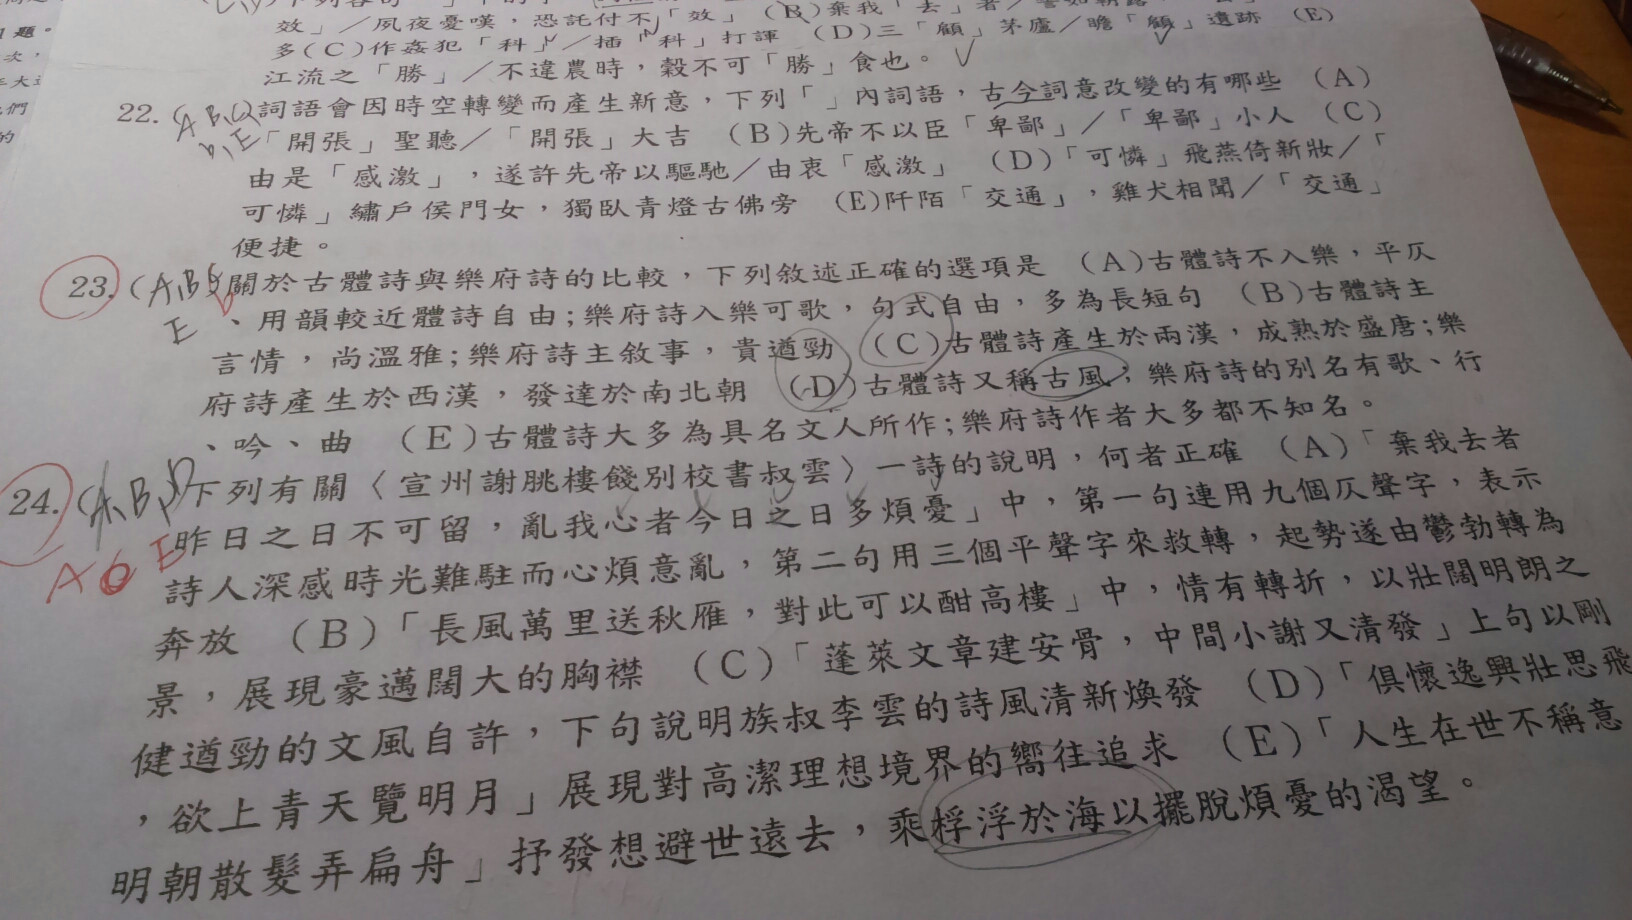 效」／夙夜憂嘆，恐託付不「效」 (B)棄我「去」者／譬如朝露，
多(C)作姦犯「科」／插「科」打諢 (D)三「顧」茅廬／瞻「顧」遺跡 (E)
江流之「勝」／不違農時，穀不可「勝」食也。
22. (A B,C)詞語會因時空轉變而產生新意，下列「」內詞語，古今詞意改變的有哪些 (A)
D,E「開張」聖聽／「開張」大吉 (B)先帝不以臣「卑鄙」／「卑鄙」小人 (C)
由是「感激」，遂許先帝以驅馳／由衷「感激」 (D)「可憐」飛燕倚新妝／「
可憐」繡戶侯門女，獨臥青燈古佛旁 (E)阡陌「交通」，雞犬相聞／「交通」
便捷。
23. (A,B 關於古體詩與樂府詩的比較，下列敘述正確的選項是 (A)古體詩不入樂，平仄
E 、用韻較近體詩自由;樂府詩入樂可歌，句式自由，多為長短句 (B)古體詩主
言情，尚溫雅;樂府詩主敘事，貴遒勁 (C)古體詩產生於兩漢，成熟於盛唐;樂
府詩產生於西漢，發達於南北朝 (D)古體詩又稱古風；樂府詩的別名有歌、行
、吟、曲 (E)古體詩大多為具名文人所作;樂府詩作者大多都不知名。
24. (A,B,D)下列有關〈宣州謝朓樓餞別校書叔雲〉一詩的說明，何者正確 (A)「棄我去者
昨日之日不可留，亂我心者今日之日多煩憂」中，第一句連用九個仄聲字，表示
A E
詩人深感時光難駐而心煩意亂，第二句用三個平聲字來救轉，起勢遂由鬱勃轉為
奔放 (B)「長風萬里送秋雁，對此可以酣高樓」中，情有轉折，以壯闊明朗之
景，展現豪邁闊大的胸襟 (C)「蓬萊文章建安骨，中間小謝又清發」上句以剛
健遒勁的文風自許，下句說明族叔李雲的詩風清新煥發 (D)「俱懷逸興壯思飛
，欲上青天覽明月」展現對高潔理想境界的嚮往追求 (E)「人生在世不稱意
明朝散髮弄扁舟」抒發想避世遠去，乘桴浮於海以擺脫煩憂的渴望。